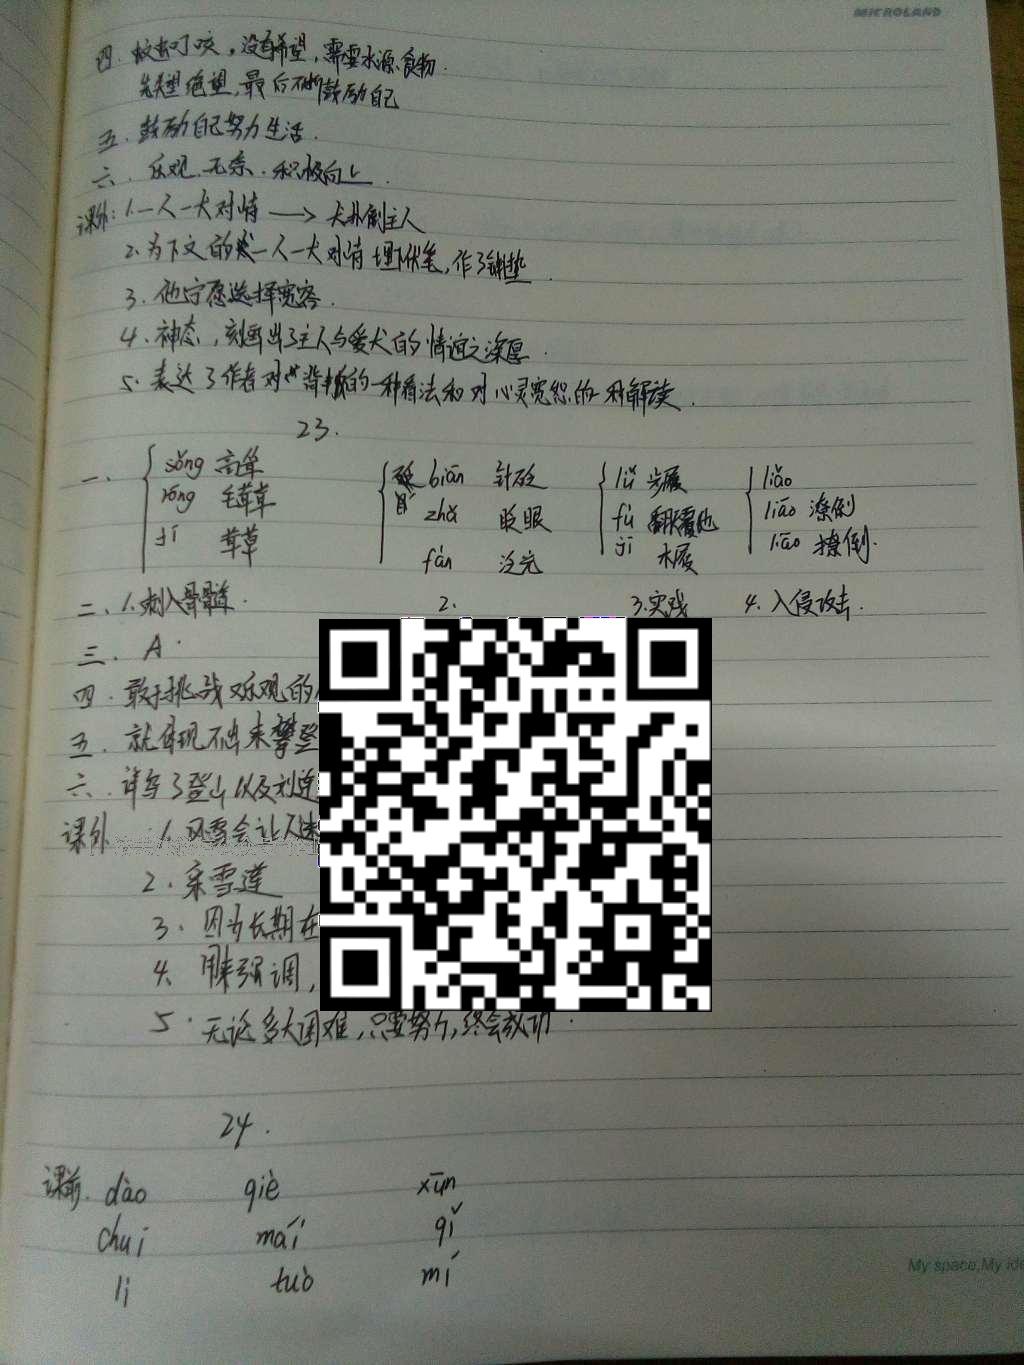 MICROLAND
四.蚊虫叮咬,没有希望,需要水源、食物.
绝望,最后不断鼓励自己
五.鼓励自己努力生活.
六.乐观、无奈、积极向上.
课外:1.一人一犬对峙→犬扑倒主人
2.为下文的一人一犬对峙埋下伏笔,作了铺垫.
3.他宁愿选择宽容.
4.神态,刻画出了主人与爱犬的情谊之深厚.
5.表达了作者对“背叛”的一种看法和对心灵宽恕的一种解读.
23.
一. sǒng 高耸 biān 针砭 lǚ 步履 liǎo
rǒng 毛茸茸 zhǎ 眨眼 fù 翻覆 liāo 潦倒
fàn 泛 jī 木屐 liāo 撩倒.
二.1.刺入骨髓. 2. 3.实践 4.入侵攻击.
三.A.
四.敢于挑战 乐观的
五.就体现不出来攀登
六.详写了登山以及
课外 1.风雪会让人
2.采雪莲
3.因为长期在
4.用来强调,
5.无论多大困难,只要努力,终会成功.
24.
课前.dào qiè xūn
chuí mái qǐ
lì tuò mí
My space,My